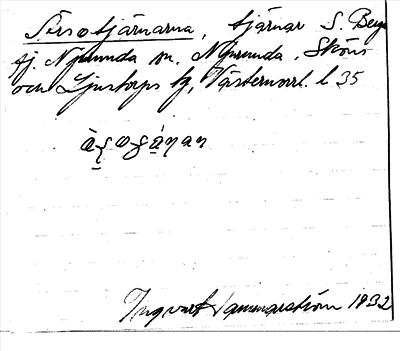 Örsotjärnarna, tjärnar S. Berge
fj. Njurunda sn, Njurunda, Sköns
och Ljustorps tg, Västernorrl. l. 35
Ingvart Hammarström 1932